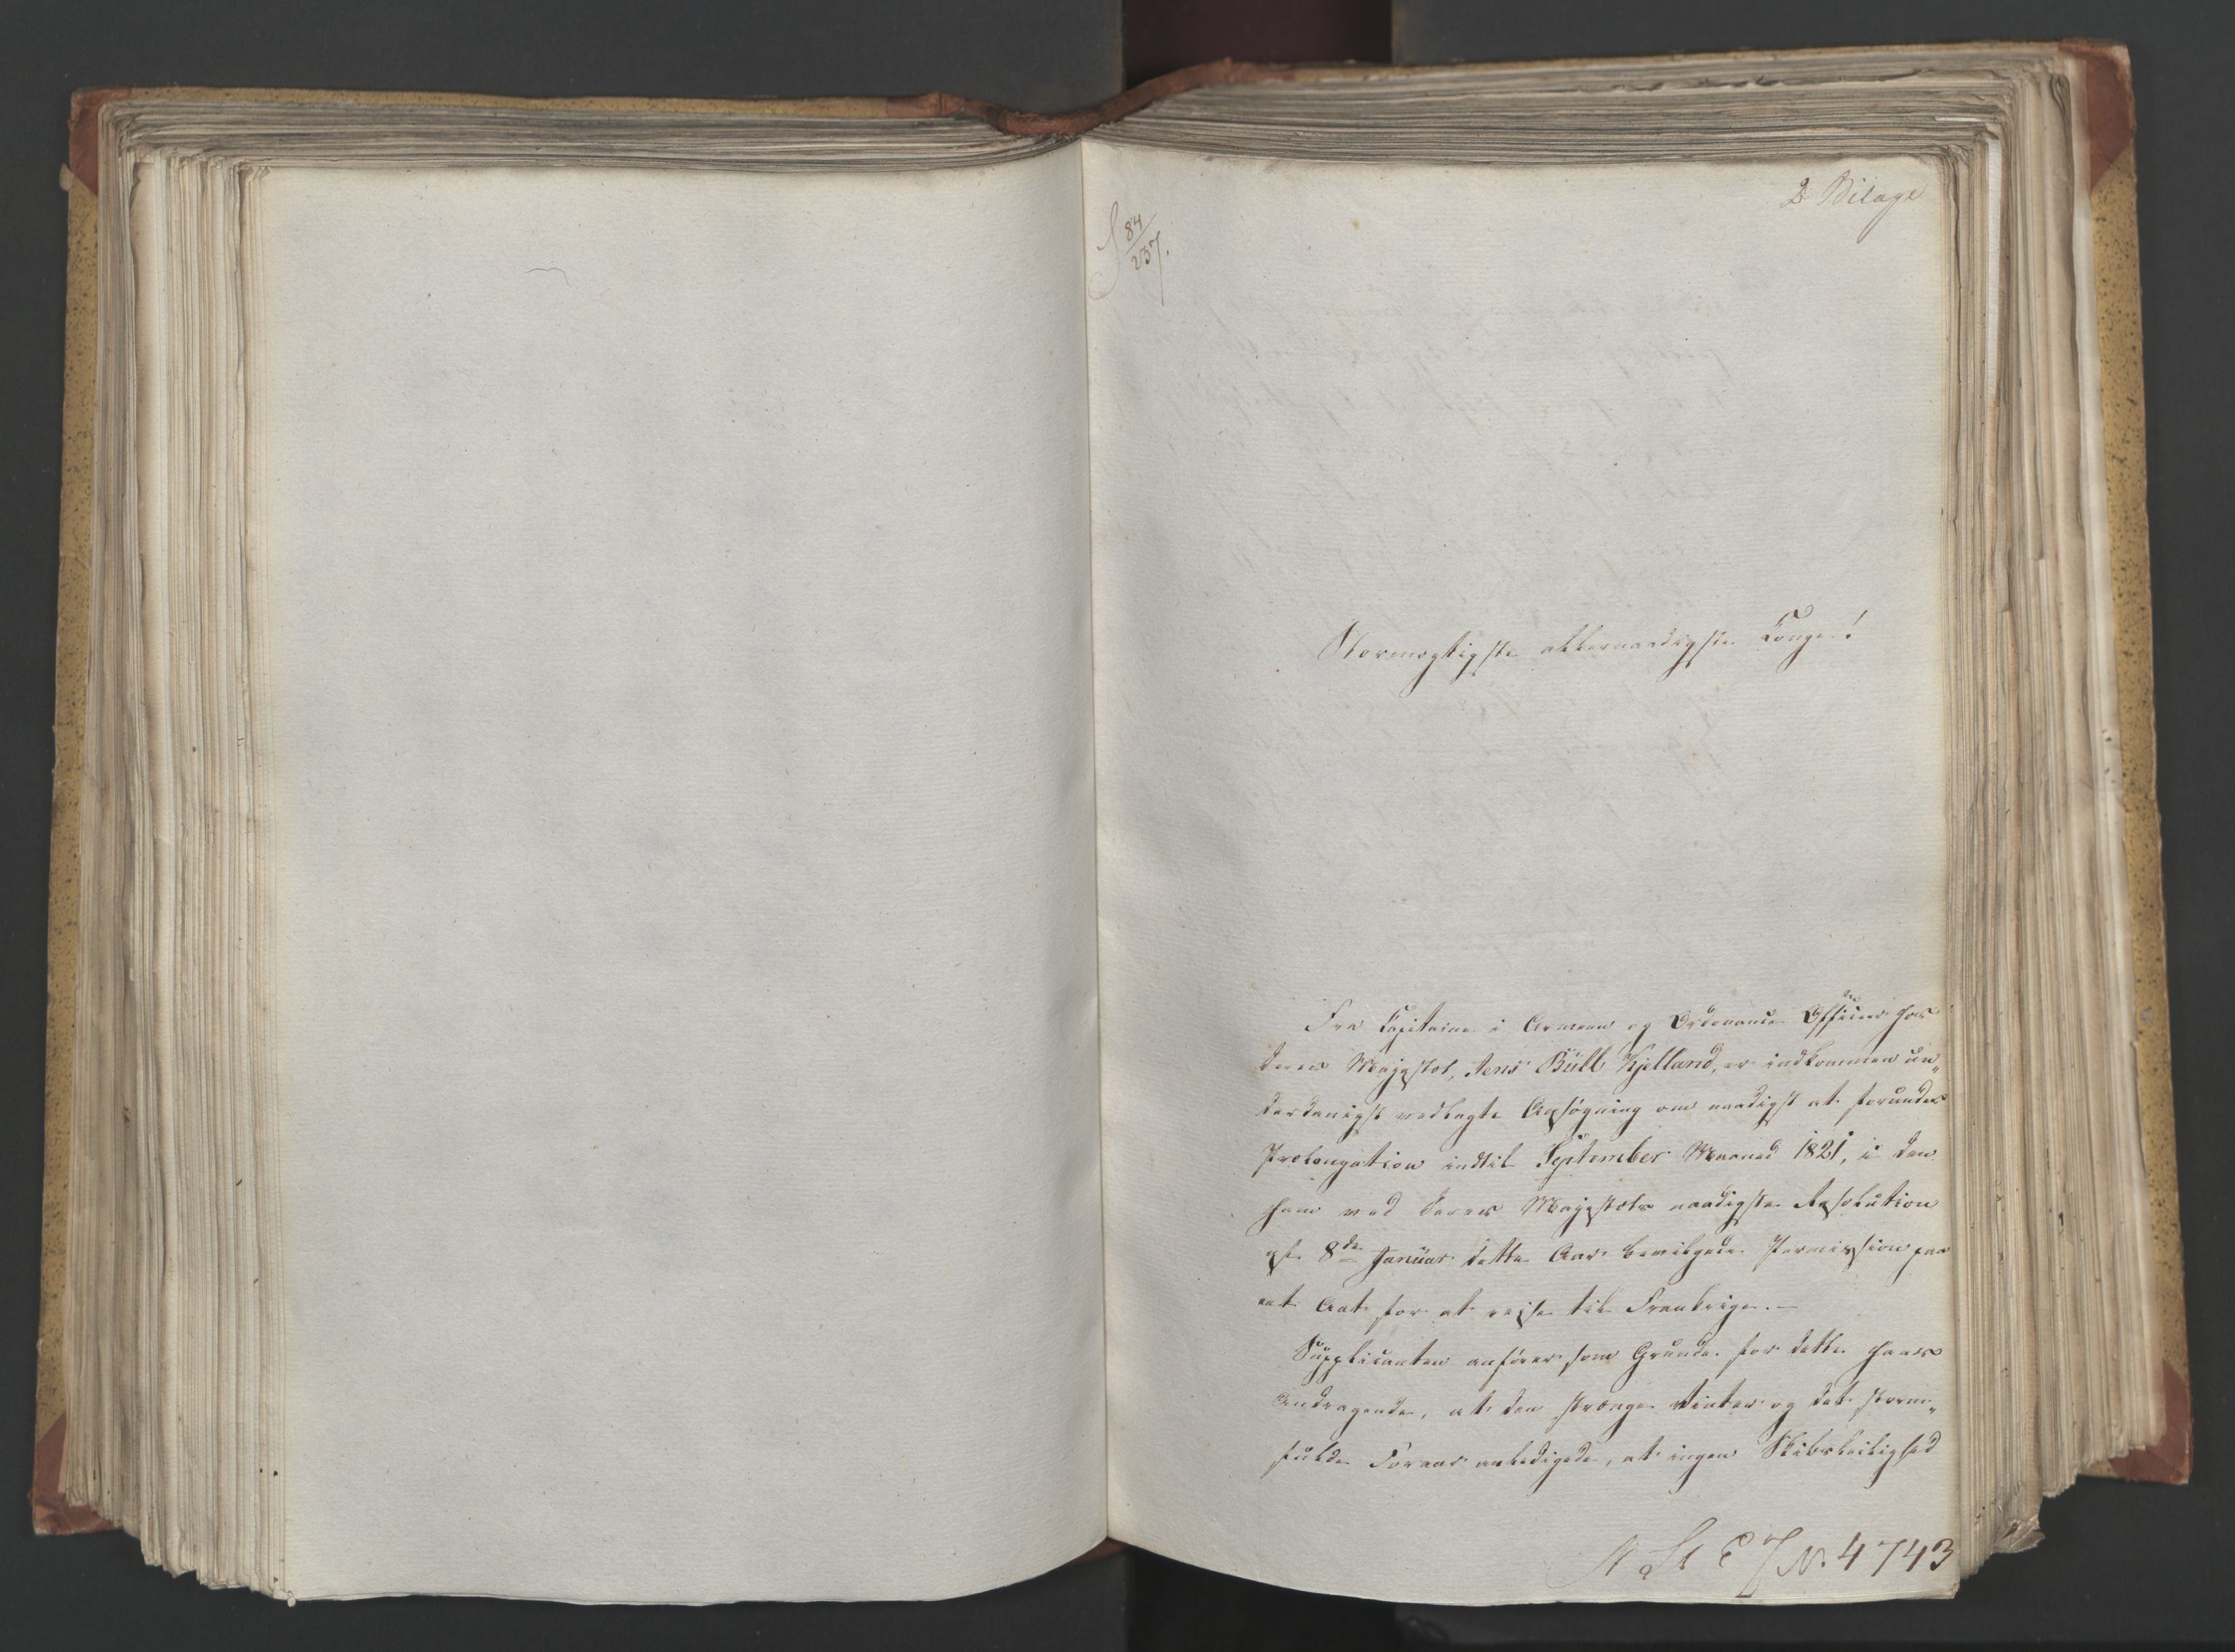 2 Bilage
84/237.
Stormægtigste allernaadigste Konge!
Fra Capitaine i Armeen og Ordonance Officier hos
Deres Majestæt, Jens Bull Kjelland, er indkommen un„
derdanigst vedlagte Ansøgning om naadigst at forundes
Prolongation indtil September Maaned 1821, i den
ham ved Deres Majestæts naadigste Resolution
af 8de Januar dette Aar bevilgede Permission paa
eet Aar for at reise til Frankrige.—
Supplicanten anfører som Grunde for dette hans
Andragende, at den strænge Vinter og det storm„
fulde Foraar anledigede, at ingen Skibsleilighed
N. 4743